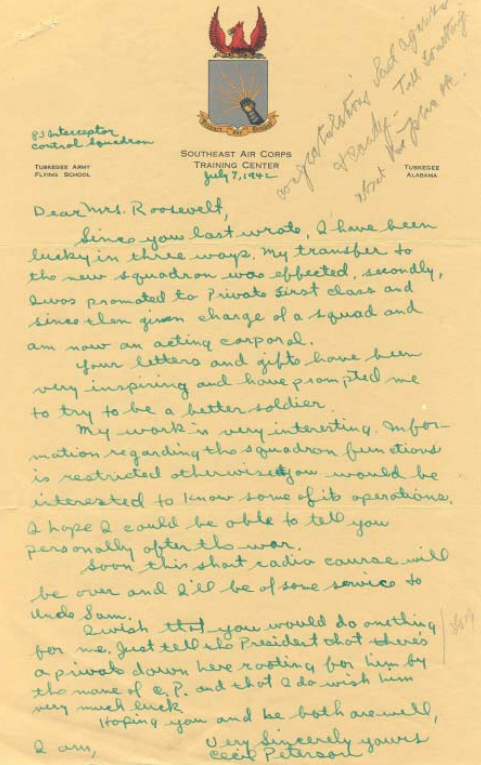 83 Interceptor
control Squadron
TUSKEGEE ARMY
FLYING SCHOOL
SOUTHEAST AIR CORPS
TRAINING CENTER
July 7, 1942
TUSKEGEE
ALABAMA
congratulations
Dear Mrs. Roosevelt,
Since you last wrote, I have been
lucky in three ways. My transfer to
the new squadron was effected, secondly,
I was promoted to Private First class and
since then given charge of a squad and
am now an acting corporal.
Your letters and gifts have been
very inspiring and have prompted me
to try to be a better soldier.
My work is very interesting. Infor-
mation regarding the squadron functions
is restricted otherwise you would be
interested to know some of its operations.
I hope I could be able to tell you
personally after the war.
Soon this short radio course will
be over and I'll be of some service to
Uncle Sam.
I wish that you would do one thing
for me. Just tell the President that there's
a private down here rooting for him by
the name of C. P. and that I do wish him
very much luck
Hoping you and he both are well,
I am,
Very Sincerely yours
Cecil Peterson